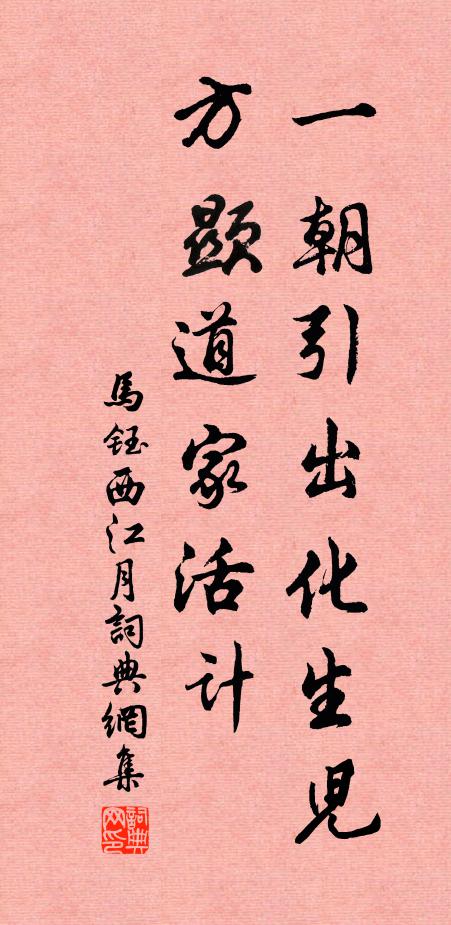 一朝引出化生児
方顕道家活計
馬鈺西江月詞典網集
詞典网印